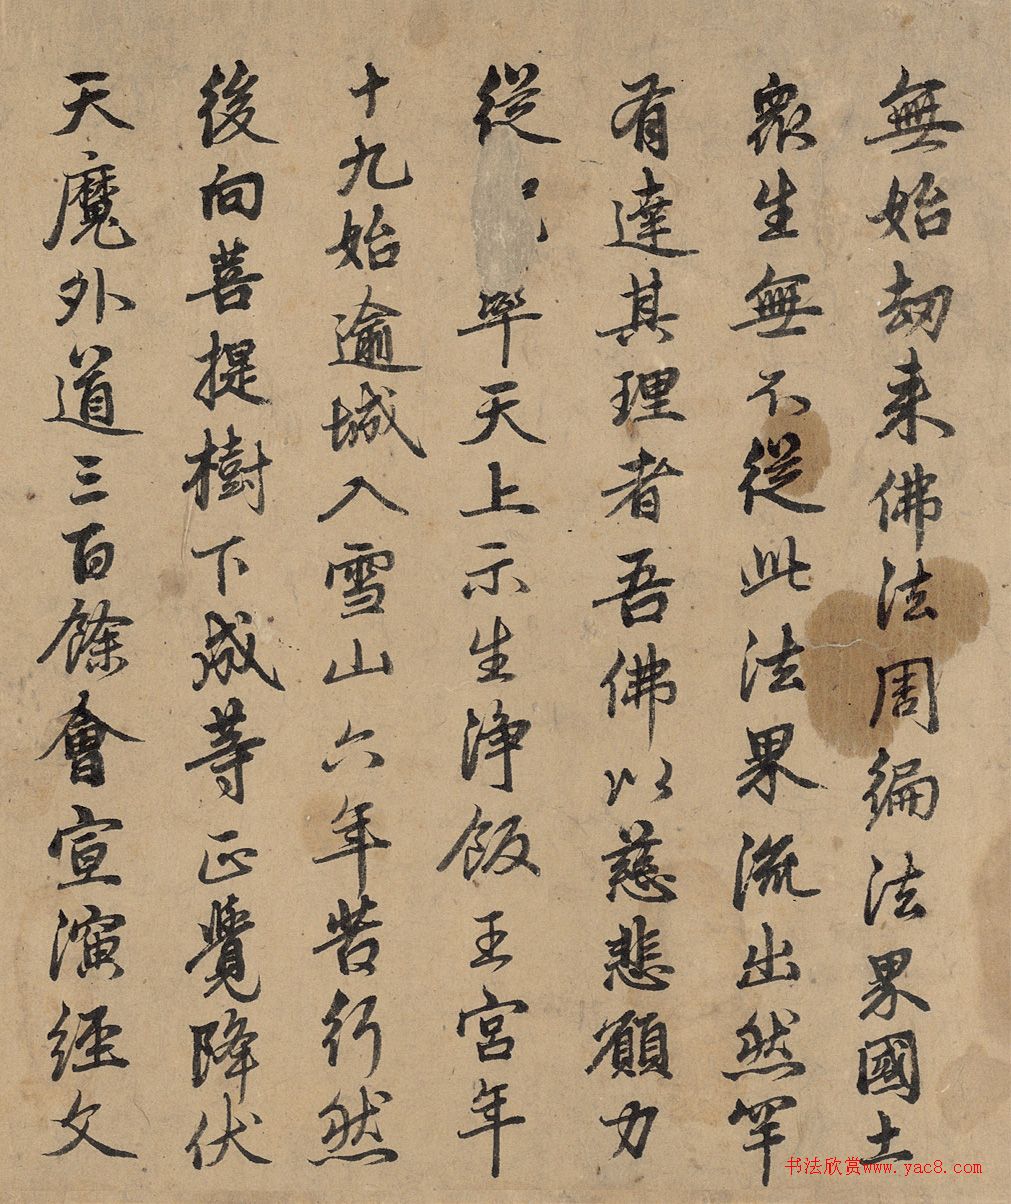 無始劫来佛法周徧法界國土
衆生無不從此法界流出然罕
有達其理者吾佛以慈悲願力
從率天上示生淨飯王宮年
十九始逾城入雪山六年苦行然
後向菩提樹下成等正覺降伏
天魔外道三百餘會宣演經文
书法欣赏www.yac8.com